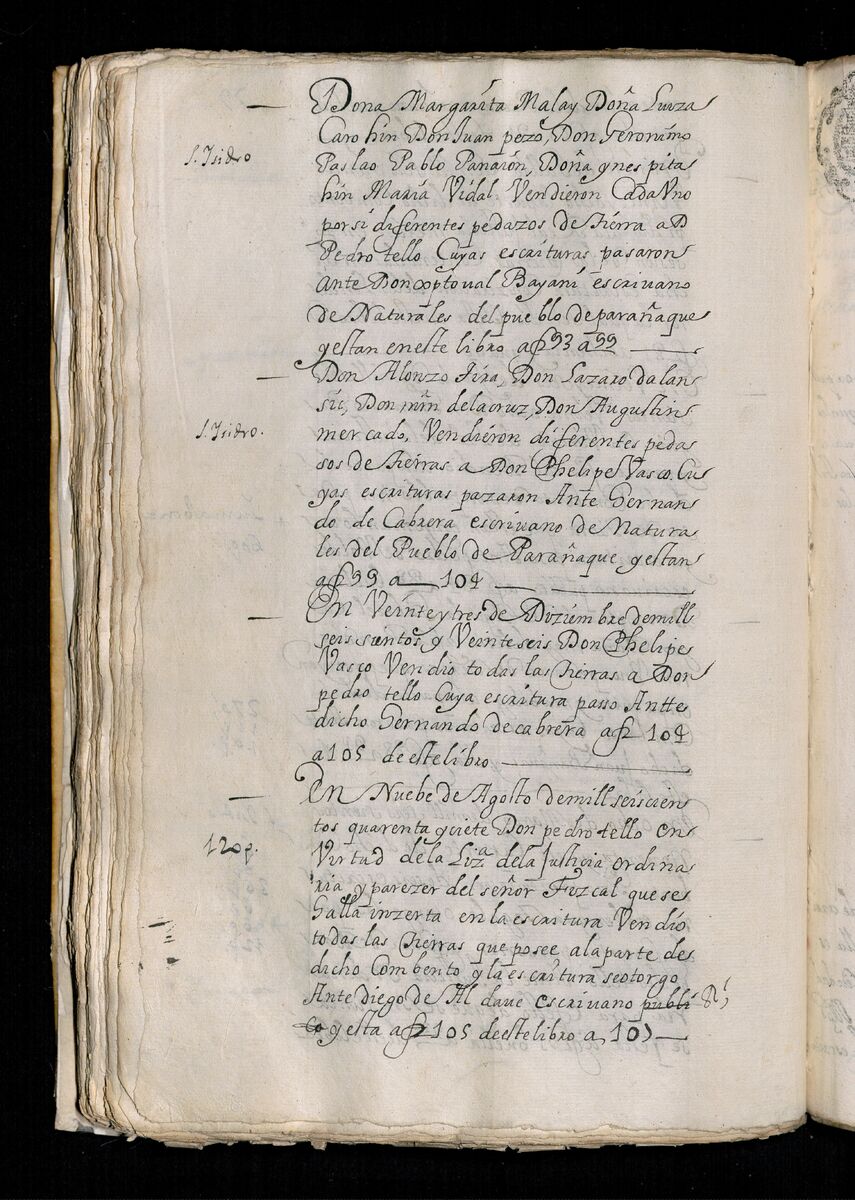 Dona Margarita Malay Doña Luiza
S. Isidro
Carohin Don Juan pezo, Don Geronimo
Paslao Pablo Panaion, Doña ynes pita
hin Maria Vidal Vendieron Cada Vno
por si diferentes pedazos de tierra a D
Pedro tello Cuyas escrituras pasaron
Ante Don xptoval Bayani escriuano
de Naturales del pueblo de parañaque
y estan en este libro a f 93 a 99
Don Alonzo Jira, Don Lazaro dalan
sic, Don min delacruz, Don Augustin
S. Isidro.
mercado, Vendieron diferentes peda
sos de tierras a Don Phelipe Vasco Cu
yas escrituras pazaron Ante Hernan
do de Cabrera escriuano de Natura
les del Pueblo de Parañaque y estan
a f 99 a 104
En Veinte y tres de Diziembre de mill
seis sientos y Veinte seis Don Phelipe
Vasco Vendio todas las tierras a Don
pedro tello Cuya escritura passo Antte
dicho Hernando de cabrera a f 104
a 105 de este libro
En Nuebe de Agosto de mill seiscien
tos quarenta y ciete Don pedro tello en
120 p.
Virtud de la Liza de la Justicia ordina
ria y parezer del señor Fizcal que se
Halla inzerta en la escritura Vendio
todas las tierras que posee a la parte de
dicho Combento y la escritura se otorgo
Ante diego de Aldave escriuano publi Rl
co y esta a f 105 de este libro a 107